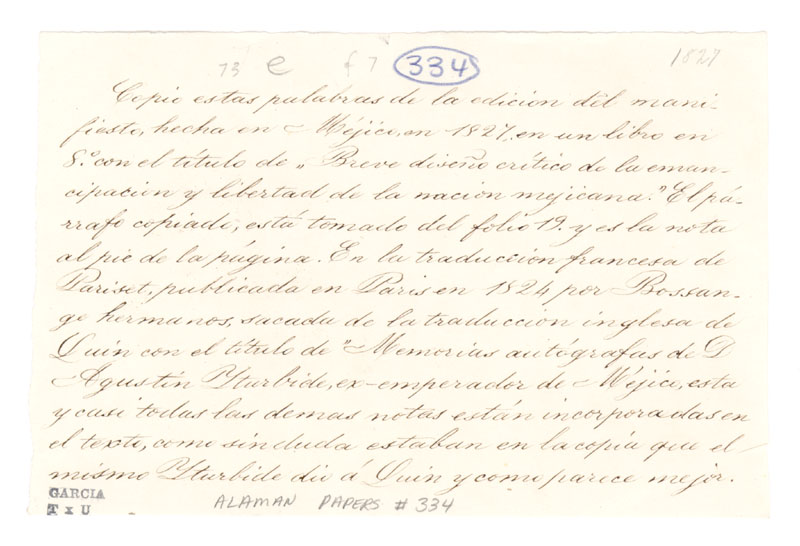 73 e f 7 334 1827
Copio estas palabras de la edicion del mani-
fiesto, hecha en Méjico, en 1827, en un libro en
8.º con el título de „Breve diseño crítico de la eman-
cipacion y libertad de la nacion mejicana." El pá-
rrafo copiado, está tomado del folio 19. y es la nota
al pie de la página. En la traduccion francesa de
Pariset, publicada en Paris en 1824 por Bossan-
ge hermanos, sacada de la traduccion inglesa de
Quin con el título de "Memorias autógrafas de D
Agustin Yturbide, ex-emperador de Méjico, esta
y casi todas las demas notas están incorporadas en
el texto, como sin duda estaban en la copia que el
mismo Yturbide dio á Quin y como parice mejor.
GARCIA
T x U
ALAMAN PAPERS # 334